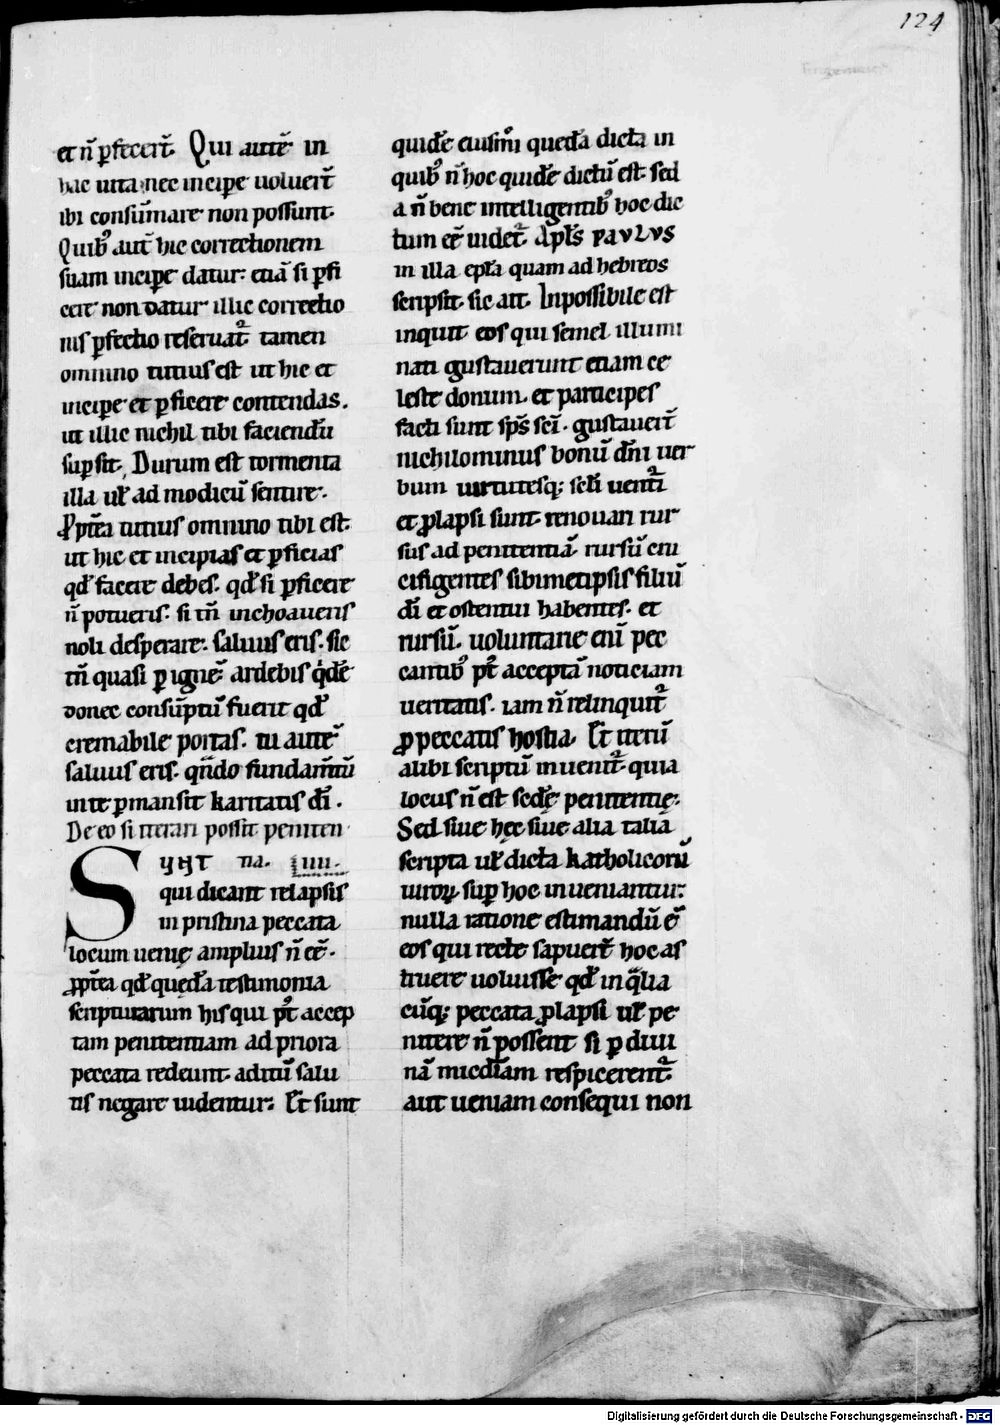 124
et n̄ ꝑfecer̄t. Qui autē in
hac uita nec incipe uoluer̄t
ibi consūmare non possunt.
Quibꝰ aut̄ hic correctionem
suam incipe datur. etiā si ꝑfi
cere non datur illic correctio
nis ꝑfectio reseruat᷑. tamen
omnino tutius est ut hic et
incipe et ꝑficere contendas.
ut illic nichil tibi faciendū
suꝑsit. Durum est tormenta
illa uł ad modicū sentire.
Ꝓpt̄ea tutius omnino tibi est.
ut hic et incipias et ꝑficias
qđ facere debes. qđ si ꝑficere
n̄ potueris. si tn̄ inchoaueris
noli desperare. saluus eris. sic
tn̄ quasi ꝑ ignē. ardebis q̇dē
donec consūptū fuerit qđ
cremabile portas. tu autē
saluus eris. qn̄do fundam̄tū
in te ꝑmansit karitatis dī.
De eo si iterari possit peniten
SUNT na. iiii.
qui dicant relapsis
in pristina peccata
locum uenię amplius n̄ eē.
ꝓpt̄ea qđ quędā testimonia
scripturarum his qui pꝰt accep
tam penitentiam ad priora
peccata redeunt. aditū salu
tis negare uidentur. Et sunt
quidē eiusm̄i quedā dicta in
quibꝰ n̄ hoc quidē dictū est. sed
a n̄ bene intelligentibꝰ hoc dic
tum eē uidet᷑. Apl̄s PAVLVS
in illa epl̄a quam ad hebreos
scripsit. sic ait. Inpossibile est
inquit eos qui semel illumi
nati gustauerunt etiam ce
leste donum. et participes
facti sunt sp̄s sc̄i. gustauer̄t
nichilominus bonū dn̄i uer
bum uirtutesq; scl̄i uent᷑i
et ꝓlapsi sunt. renouari rur
sus ad penitentiā. rursū cru
cifigentes sibimetipsis filiū
dī et ostentui habentes. et
rursū. uoluntarie eni̅ pec
cantibꝰ pꝰt acceptā noticiam
ueritatis. iam n̄ relinquit᷑
ꝓ peccatis hostia. Et iterū
alibi scriptū inuenit᷑. quia
locus n̄ est secdę penitentię.
Sed siue hęc siue alia talia
scripta uł dicta katholicorū
uiroꝝ suꝑ hoc inueniantur.
nulla ratione estimandū ē
eos qui recte sapuer̄t hoc as
truere uoluisse qđ in q̄lia
cūq; peccata ꝓlapsi uł pe
nitere n̄ possent si ꝑ diui
nā mic̄diam respicerent᷑.
aut ueniam consequi non
Digitalisierung gefördert durch die Deutsche Forschungsgemeinschaft - DFG